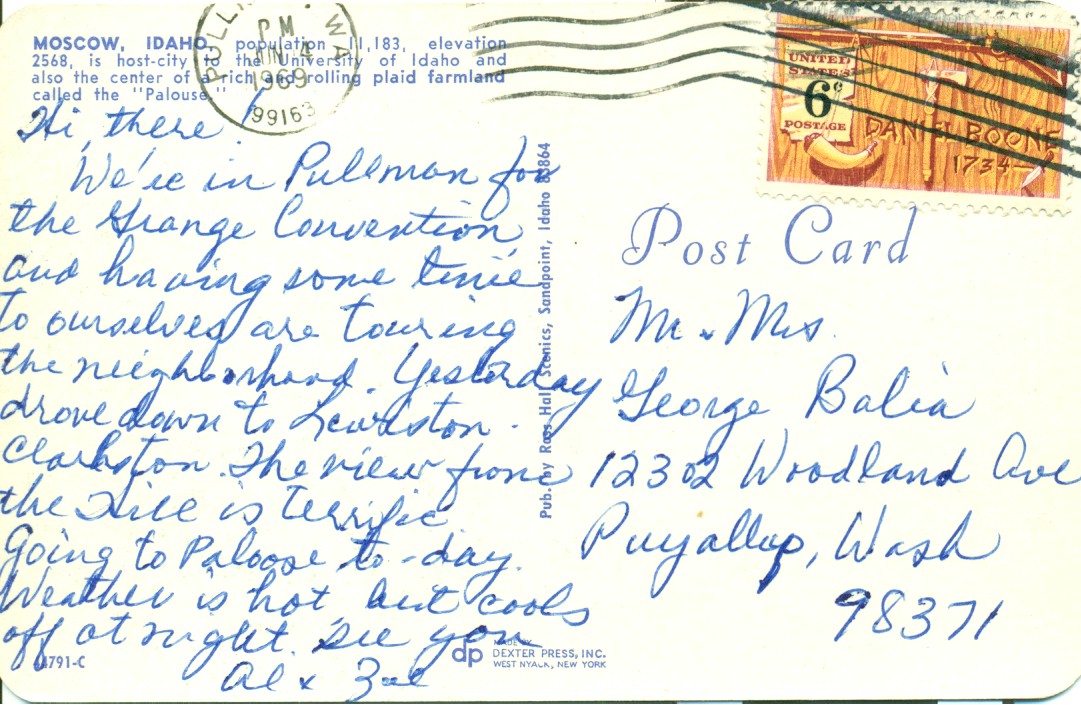 MOSCOW, IDAHO, population 11,183, elevation
2568, is host-city to the University of Idaho and
also the center of a rich and rolling plaid farmland
called the "Palouse."
PM
JUN 4
1969
99163
WA
UNITED
STATES
6c
POSTAGE
DANIEL BOONE
1734-
Hi, there!
We're in Pullman for
the Grange Convention
and having some time
to ourselves are touring
the neighborhood. Yesterday
drove down to Lewiston -
Clarkston. The view from
the Hill is terrific
Going to Paloose to-day.
Weather is hot but cools
off at night. See you
Al &
Pub. by Ross Hall Scenics, Sandpoint, Idaho 83864
Post Card
Mr & Mrs.
George Balia
12302 Woodland Ave
Puyallup, Wash
98371
dp
MADE BY
DEXTER PRESS, INC.
WEST NYACK, NEW YORK
791-C